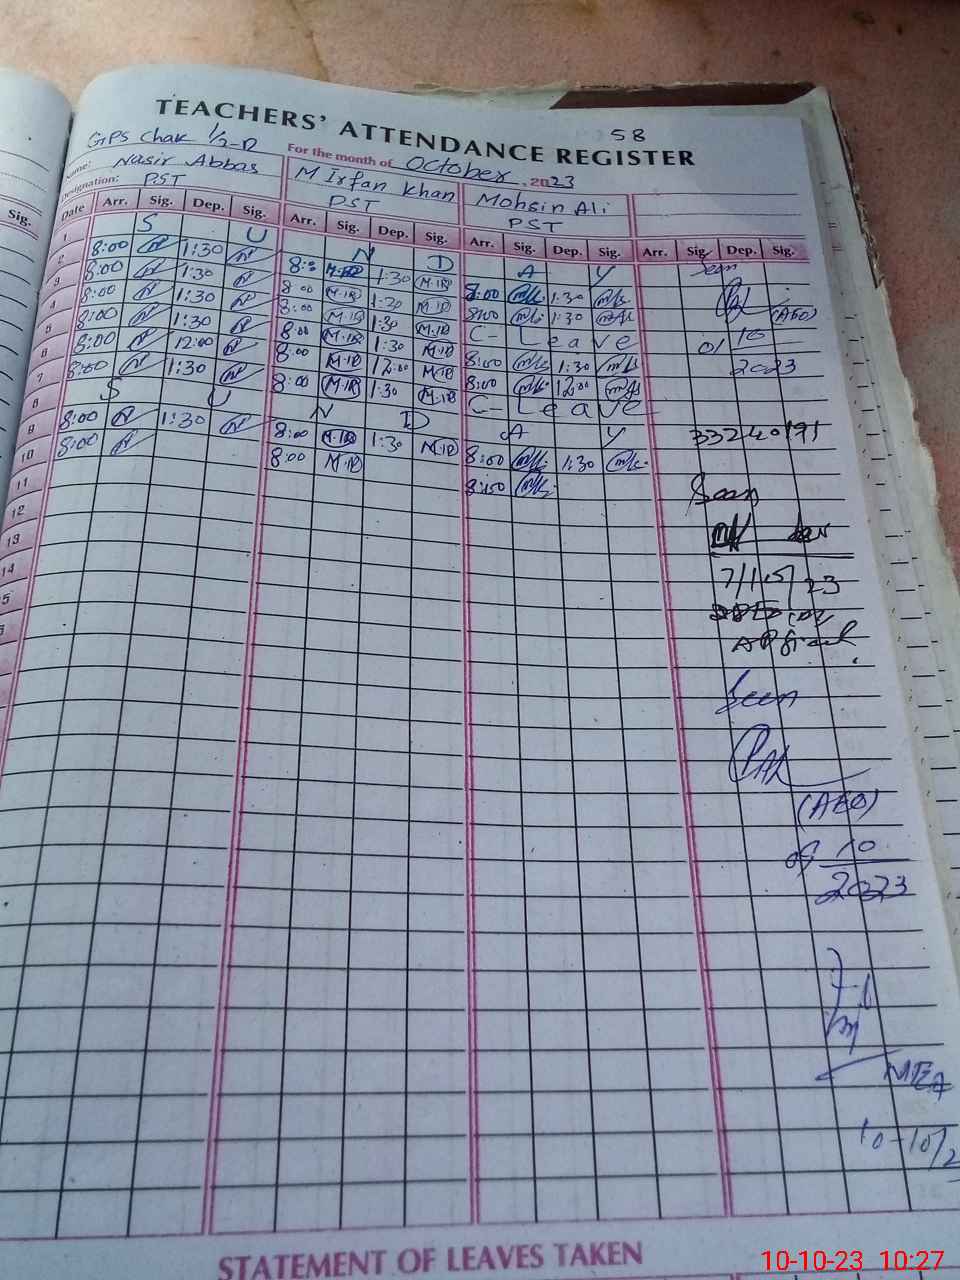 TEACHERS' ATTENDANCE REGISTER
58
GPS Chak 1/2-D
For the month of October, 2023
Name: Nasir Abbas
M Irfan Khan
Mohsin Ali
Designation: PST
PST
PST
Sig.
Date Arr. Sig. Dep. Sig. Arr. Sig. Dep. Sig. Arr. Sig. Dep. Sig. Arr. Sig. Dep. Sig.
1 S U N D A Y
2 8:00 1:30 8:00 M.IR 1:30 M.IR 8:00 1:30
3 8:00 1:30 8:00 M.IR 1:30 M.IR 8:00 1:30
4 8:00 1:30 8:00 M.IR 1:30 M.IR C- Leave
5 8:00 1:30 8:00 M.IR 1:30 M.IR 8:00 1:30
6 8:00 12:00 8:00 M.IR 12:00 M.IR 8:00 12:00
7 8:00 1:30 8:00 M.IR 1:30 M.IR C- Leave
8 S U N D A Y
9 8:00 1:30 8:00 M.IR 1:30 M.IR 8:00 1:30
10 8:00 8:00 M.IR 8:00
11
12
13
14
Seen
(AEO)
10
2023
33240191
Seen
Seen
(AEO)
10
2023
MEA
STATEMENT OF LEAVES TAKEN
10-10-23 10:27